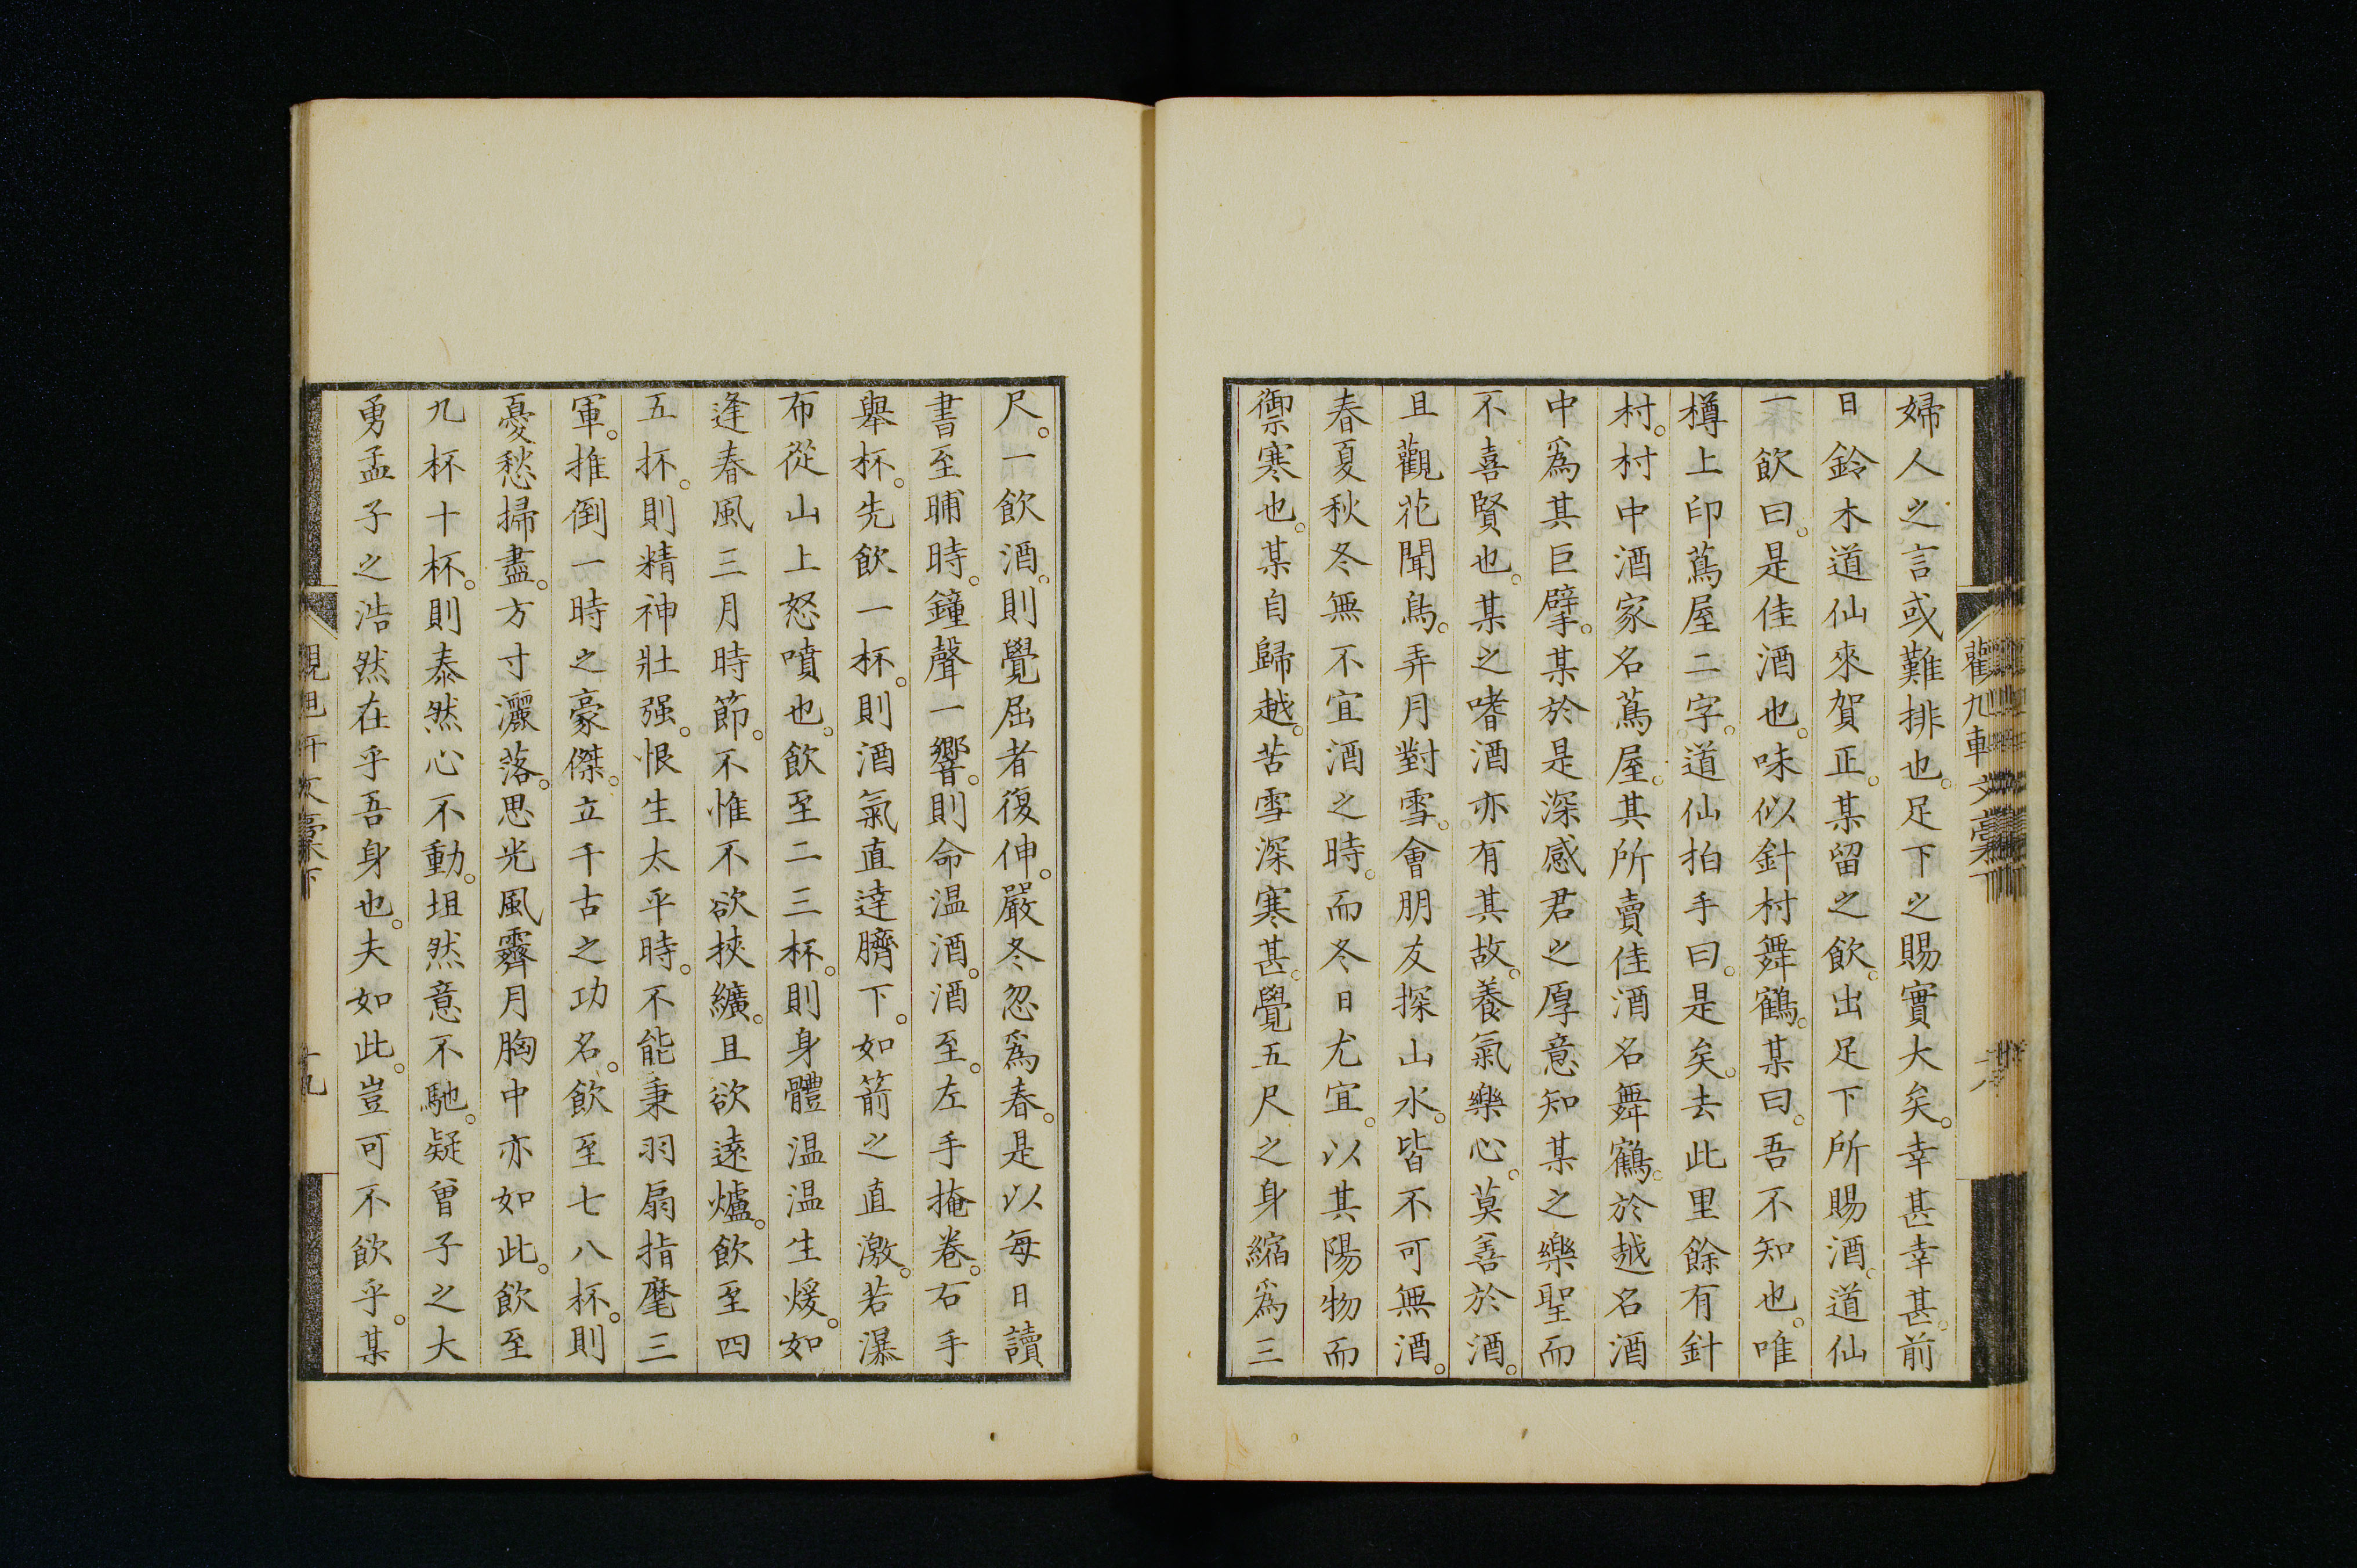 婦人之言或難排也。足下之賜實大矣。幸甚幸甚。前
日鈴木道仙來賀正。某留之飲。出足下所賜酒。道仙
一飲曰。是佳酒也。味似針村舞鶴。某曰。吾不知也。唯
樽上印蔦屋二字。道仙拍手曰。是矣。去此里餘有針
村。村中酒家名蔦屋。其所賣佳酒名舞鶴。於越名酒
中爲其巨擘。某於是深感君之厚意知某之樂聖而
不喜賢也。某之嗜酒亦有其故。養氣樂心。莫善於酒。
且觀花聞鳥。弄月對雪。會朋友探山水。皆不可無酒。
春夏秋冬無不宜酒之時。而冬日尤宜。以其陽物而
禦寒也。某自歸越。苦雪深寒甚。覺五尺之身縮爲三
尺。一飲酒。則覺屈者復伸。嚴冬忽爲春。是以每日讀
書至晡時。鐘聲一響。則命温酒。酒至。左手掩卷。右手
舉杯。先飲一杯。則酒氣直達臍下。如箭之直激。若瀑
布從山上怒噴也。飲至二三杯。則身體温温生煖。如
逢春風三月時節。不惟不欲挾纊。且欲遠爐。飲至四
五杯。則精神壯强。恨生太平時。不能秉羽扇指麾三
軍。推倒一時之豪傑。立千古之功名。飲至七八杯。則
憂愁掃盡。方寸灑落。思光風霽月胸中亦如此。飲至
九杯十杯。則泰然心不動。坦然意不馳。疑曾子之大
勇孟子之浩然在乎吾身也。夫如此。豈可不飲乎。某